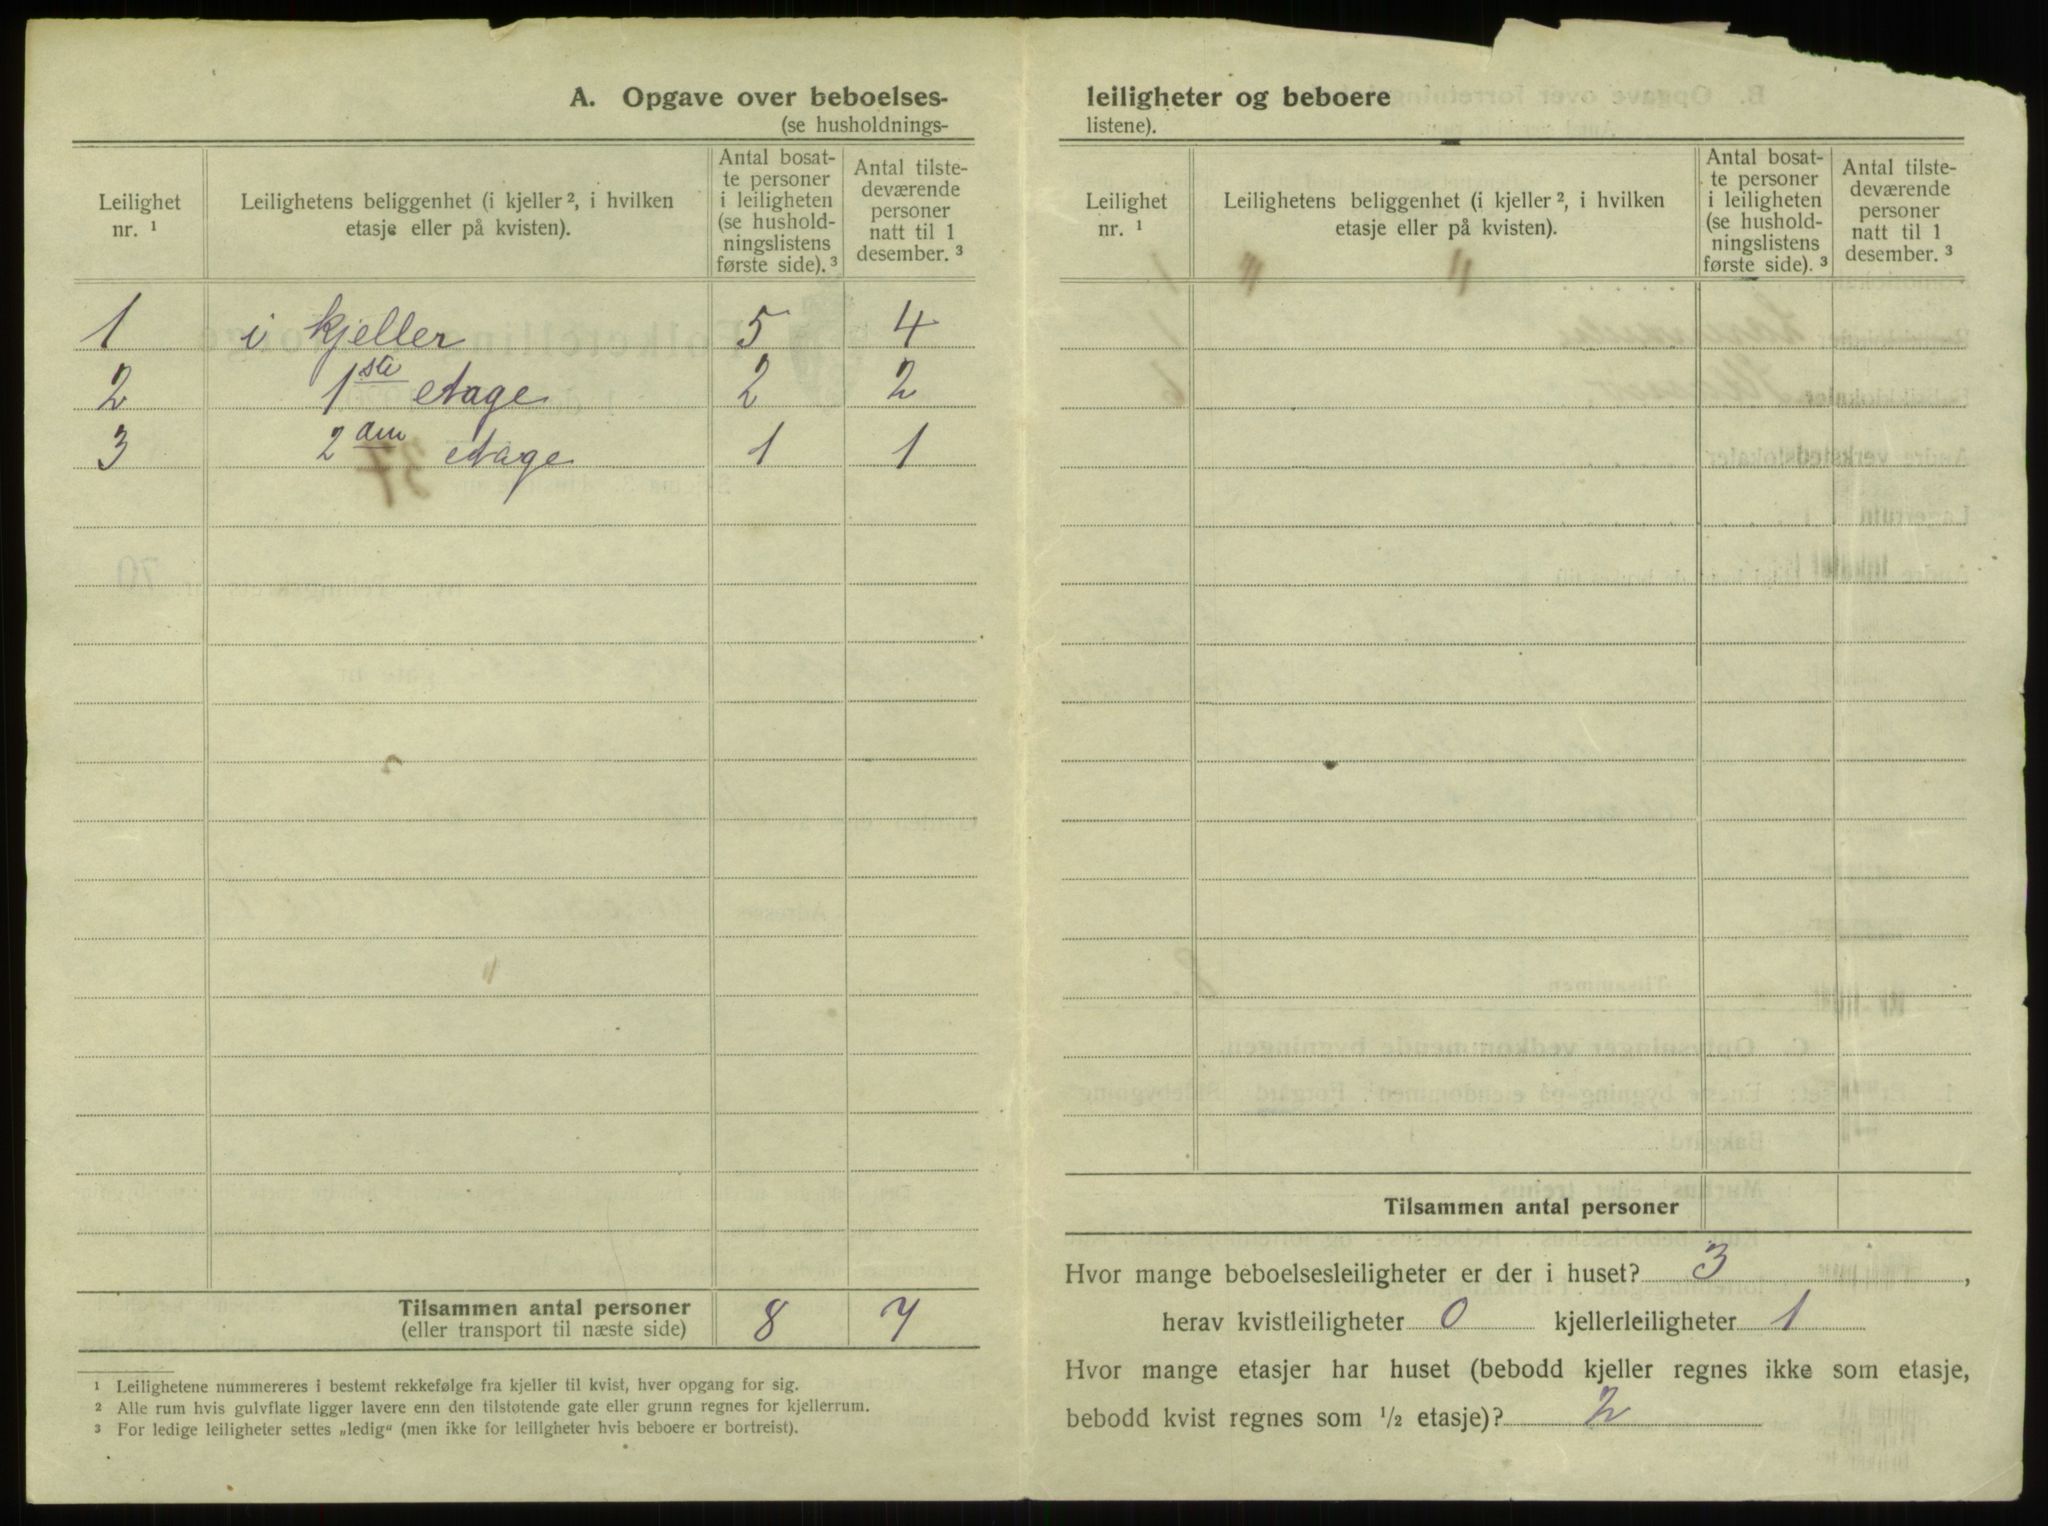 A. Opgave over beboelses-
(se husholdnings-
Leilighet nr. ¹
Leilighetens beliggenhet (i kjeller ², i hvilken etasje eller på kvisten).
Antal bosatte personer i leiligheten (se husholdningslistens første side). ³
Antal tilstedeværende personer natt til 1 desember. ³
1 i kjeller 5 4
2 1ste etage 2 2
3 2den etage 1 1
37
Tilsammen antal personer 8 7
(eller transport til næste side)
¹ Leilighetene nummereres i bestemt rekkefølge fra kjeller til kvist, hver opgang for sig.
² Alle rum hvis gulvflate ligger lavere enn den tilstøtende gate eller grunn regnes for kjellerrum.
³ For ledige leiligheter settes „ledig“ (men ikke for leiligheter hvis beboere er bortreist).
leiligheter og beboere
listene).
Leilighet nr. ¹
Leilighetens beliggenhet (i kjeller ², i hvilken etasje eller på kvisten).
Antal bosatte personer i leiligheten (se husholdningslistens første side). ³
Antal tilstedeværende personer natt til 1 desember. ³
Tilsammen antal personer
Hvor mange beboelsesleiligheter er der i huset? 3,
herav kvistleiligheter 0 kjellerleiligheter 1
Hvor mange etasjer har huset (bebodd kjeller regnes ikke som etasje,
bebodd kvist regnes som ½ etasje)? 2